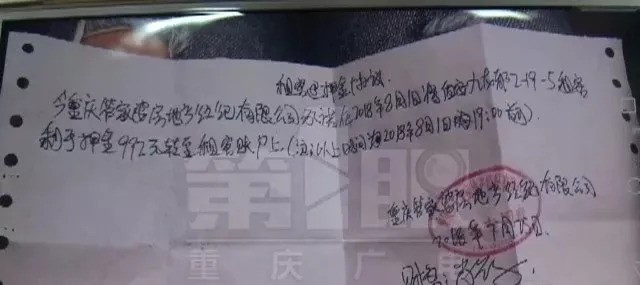 租房退押金协议
今重庆管家婆房地产经纪有限公司承诺在2018年8月1日将 2-19-5租客
剩于押金992元转至租客账户上(注:以上时间为2018年8月1日晚19:00前)
第1眼
重庆广电
重庆管家婆房地产经纪有限公司
2018年7月25日